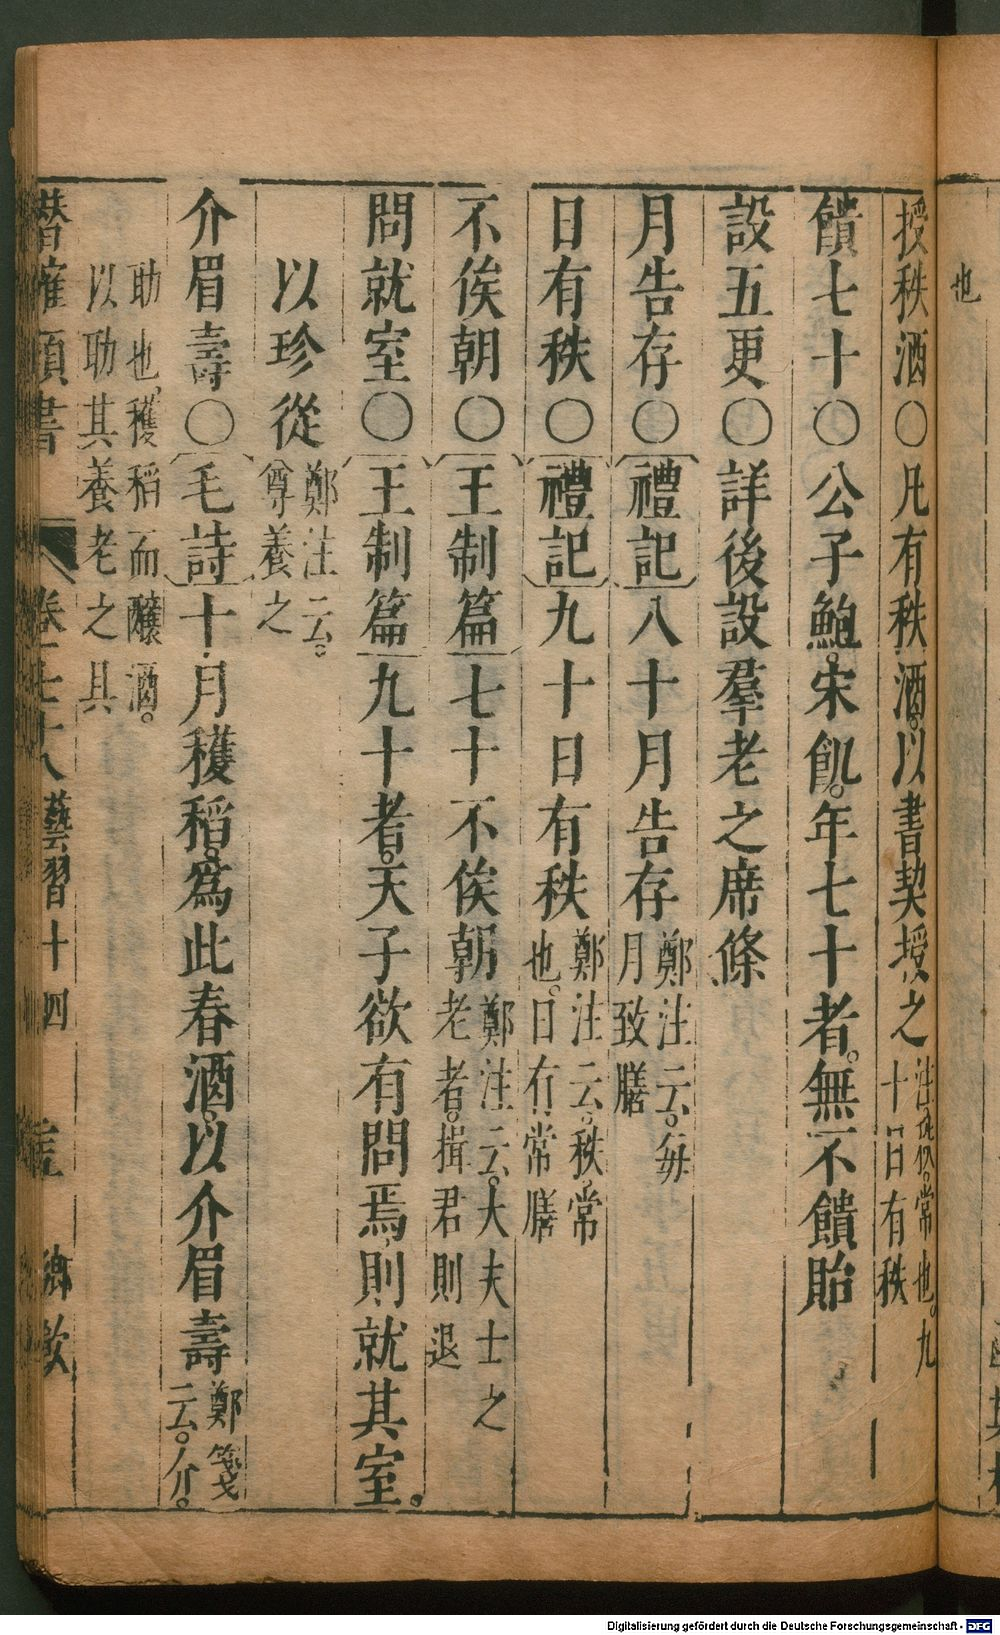 也
授秩酒○凡有秩酒。以書契授之注秩。常也。九十日有秩
饋七十○公子鮑。宋飢。年七十者。無不饋貽
設五更○詳後設羣老之席條
月告存○禮記八十月告存鄭注云。每月致膳
日有秩○禮記九十日有秩鄭注云。秩。常也。日有常膳
不俟朝○王制篇七十不俟朝鄭注云。大夫士之老者。揖君則退
問就室○王制篇九十者。天子欲有問焉。則就其室。
以珍從鄭注云。尊養之
介眉壽○毛詩十月穫稻。為此春酒。以介眉壽鄭箋云。介。
助也。穫稻而釀酒。以助其養老之具
潛確類書 卷七十八 藝習十四 鄉飲
Digitalisierung gefördert durch die Deutsche Forschungsgemeinschaft - DFG